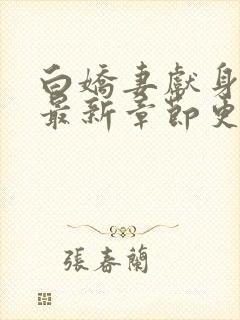 白嬌妻獻身
最新章節史
張春蘭